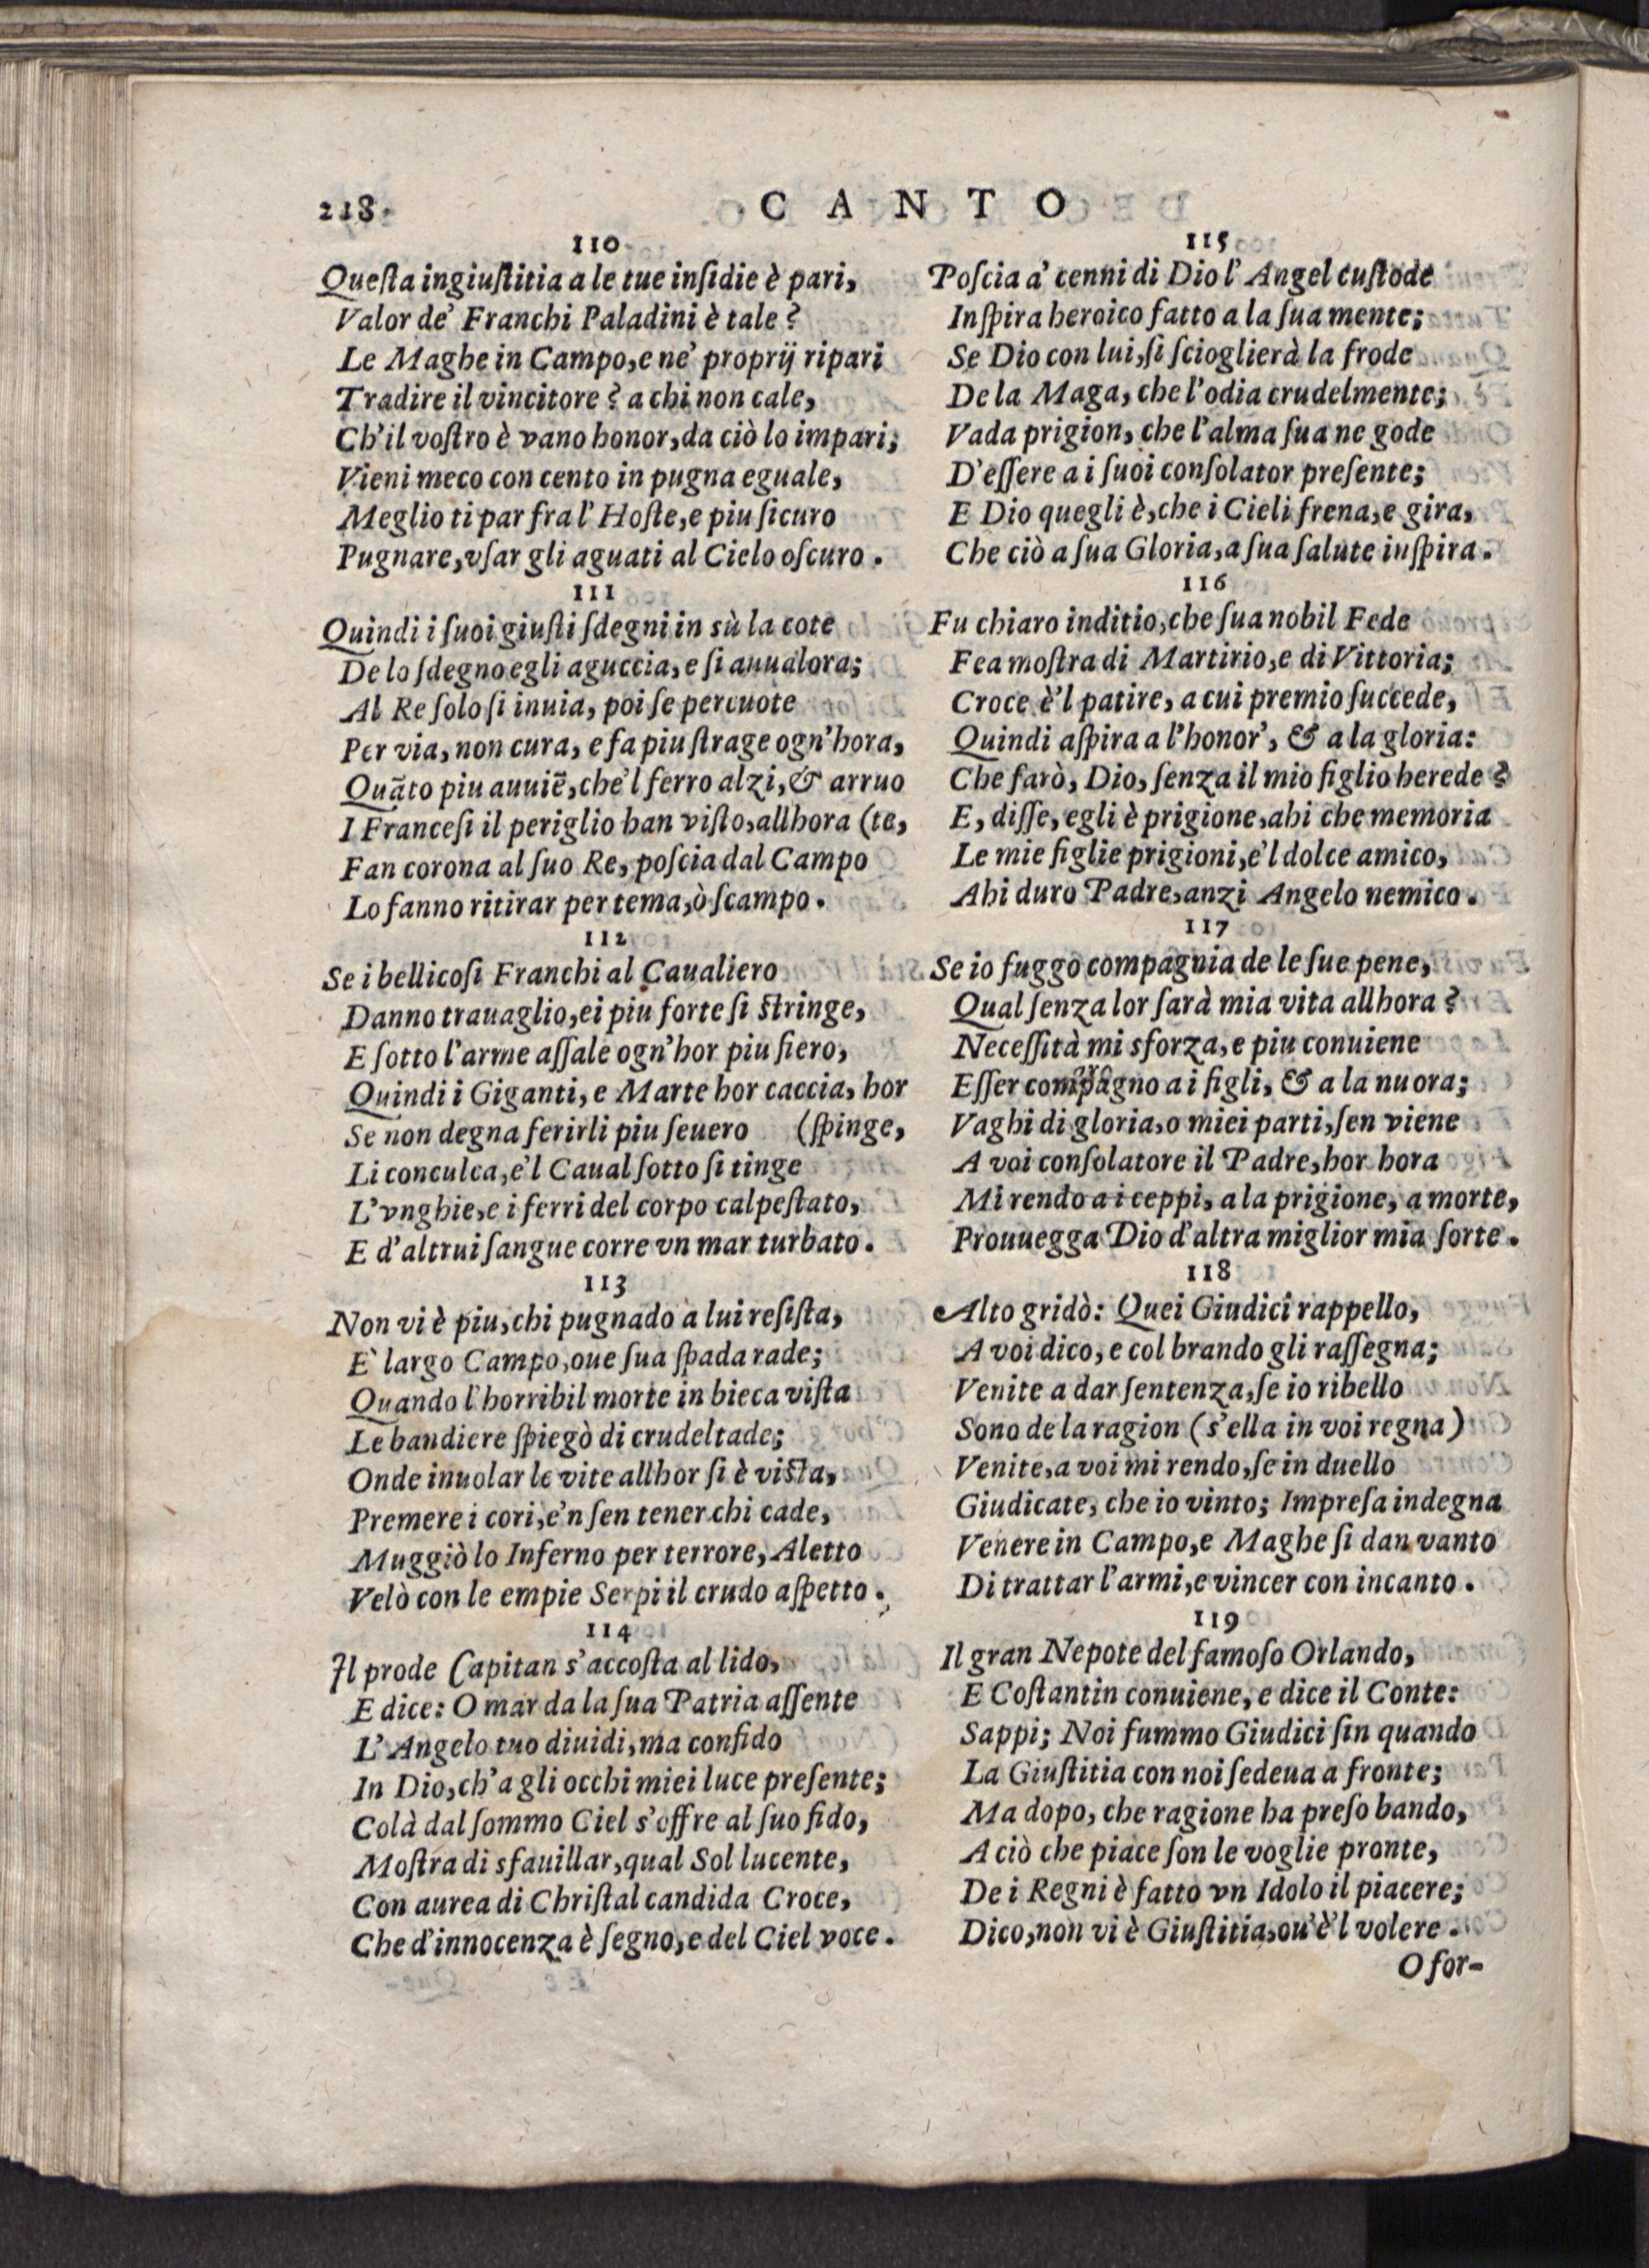 218.
CANTO
110
Queſta ingiuſtitia a le tue inſidie è pari,
Valor de' Franchi Paladini è tale?
Le Maghe in Campo, e ne' proprij ripari
Tradire il vincitore? a chi non cale,
Ch'il voſtro è vano honor, da ciò lo impari;
Vieni meco con cento in pugna eguale,
Meglio ti par fra l'Hoſte, e piu ſicuro
Pugnare, vſar gli aguati al Cielo oſcuro.
111
Quindi i ſuoi giuſti ſdegni in sù la cote
De lo ſdegno egli aguccia, e ſi auualora;
Al Re ſolo ſi inuia, poi ſe percuote
Per via, non cura, e fa piu ſtrage ogn'hora,
Quãto piu auuiẽ, che'l ferro alzi, & arruo
I Franceſi il periglio han viſto, allhora (te,
Fan corona al ſuo Re, poſcia dal Campo
Lo fanno ritirar per tema, ò ſcampo.
112
Se i bellicoſi Franchi al Caualiero
Danno trauaglio, ei piu forte ſi ſtringe,
E ſotto l'arme aſſale ogn'hor piu fiero,
Quindi i Giganti, e Marte hor caccia, hor
Se non degna ferirli piu ſeuero (ſpinge,
Li conculca, e'l Caual ſotto ſi tinge
L'vnghie, e i ferri del corpo calpeſtato,
E d'altrui ſangue corre vn mar turbato.
113
Non vi è piu, chi pugnado a lui reſiſta,
E' largo Campo, oue ſua ſpada rade;
Quando l'horribil morte in bieca viſta
Le bandiere ſpiegò di crudeltade;
Onde inuolar le vite allhor ſi è viſta,
Premere i cori, e'n ſen tener chi cade,
Muggiò lo Inferno per terrore, Aletto
Velò con le empie Serpi il crudo aſpetto.
114
Il prode Capitan s'accoſta al lido,
E dice: O mar da la ſua Patria aſſente
L'Angelo tuo diuidi, ma confido
In Dio, ch'a gli occhi miei luce preſente;
Colà dal ſommo Ciel s'offre al ſuo fido,
Moſtra di sfauillar, qual Sol lucente,
Con aurea di Chriſtal candida Croce,
Che d'innocenza è ſegno, e del Ciel voce.
115
Poſcia a' cenni di Dio l'Angel cuſtode
Inſpira heroico fatto a la ſua mente;
Se Dio con lui, ſi ſcioglierà la frode
De la Maga, che l'odia crudelmente;
Vada prigion, che l'alma ſua ne gode
D'eſſere a i ſuoi conſolator preſente;
E Dio quegli è, che i Cieli frena, e gira,
Che ciò a ſua Gloria, a ſua ſalute inſpira.
116
Fu chiaro inditio, che ſua nobil Fede
Fea moſtra di Martirio, e di Vittoria;
Croce è'l patire, a cui premio ſuccede,
Quindi aſpira a l'honor', & a la gloria:
Che farò, Dio, ſenza il mio figlio herede?
E, diſſe, egli è prigione, ahi che memoria
Le mie figlie prigioni, e'l dolce amico,
Ahi duro Padre, anzi Angelo nemico.
117
Se io fuggo compagnia de le ſue pene,
Qual ſenza lor ſarà mia vita allhora?
Neceſſità mi sforza, e piu conuiene
Eſſer compagno a i figli, & a la nuora;
Vaghi di gloria, o miei parti, ſen viene
A voi conſolatore il Padre, hor hora
Mi rendo a i ceppi, a la prigione, a morte,
Prouuegga Dio d'altra miglior mia ſorte.
118
Alto gridò: Quei Giudici rappello,
A voi dico, e col brando gli raſſegna;
Venite a dar ſentenza, ſe io ribello
Sono de la ragion (s'ella in voi regna)
Venite, a voi mi rendo, ſe in duello
Giudicate, che io vinto; Impreſa indegna
Venere in Campo, e Maghe ſi dan vanto
Di trattar l'armi, e vincer con incanto.
119
Il gran Nepote del famoſo Orlando,
E Coſtantin conuiene, e dice il Conte:
Sappi; Noi fummo Giudici ſin quando
La Giuſtitia con noi ſedeua a fronte;
Ma dopo, che ragione ha preſo bando,
A ciò che piace ſon le voglie pronte,
De i Regni è fatto vn Idolo il piacere;
Dico, non vi è Giuſtitia, ou'è'l volere.
O for-